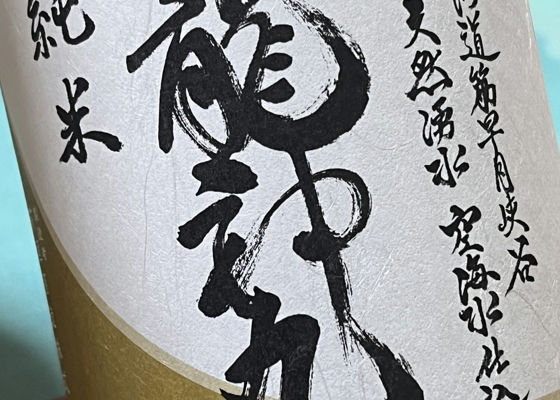 道筋早月峡谷
天然湧水 空海水仕込
龍神丸
純米